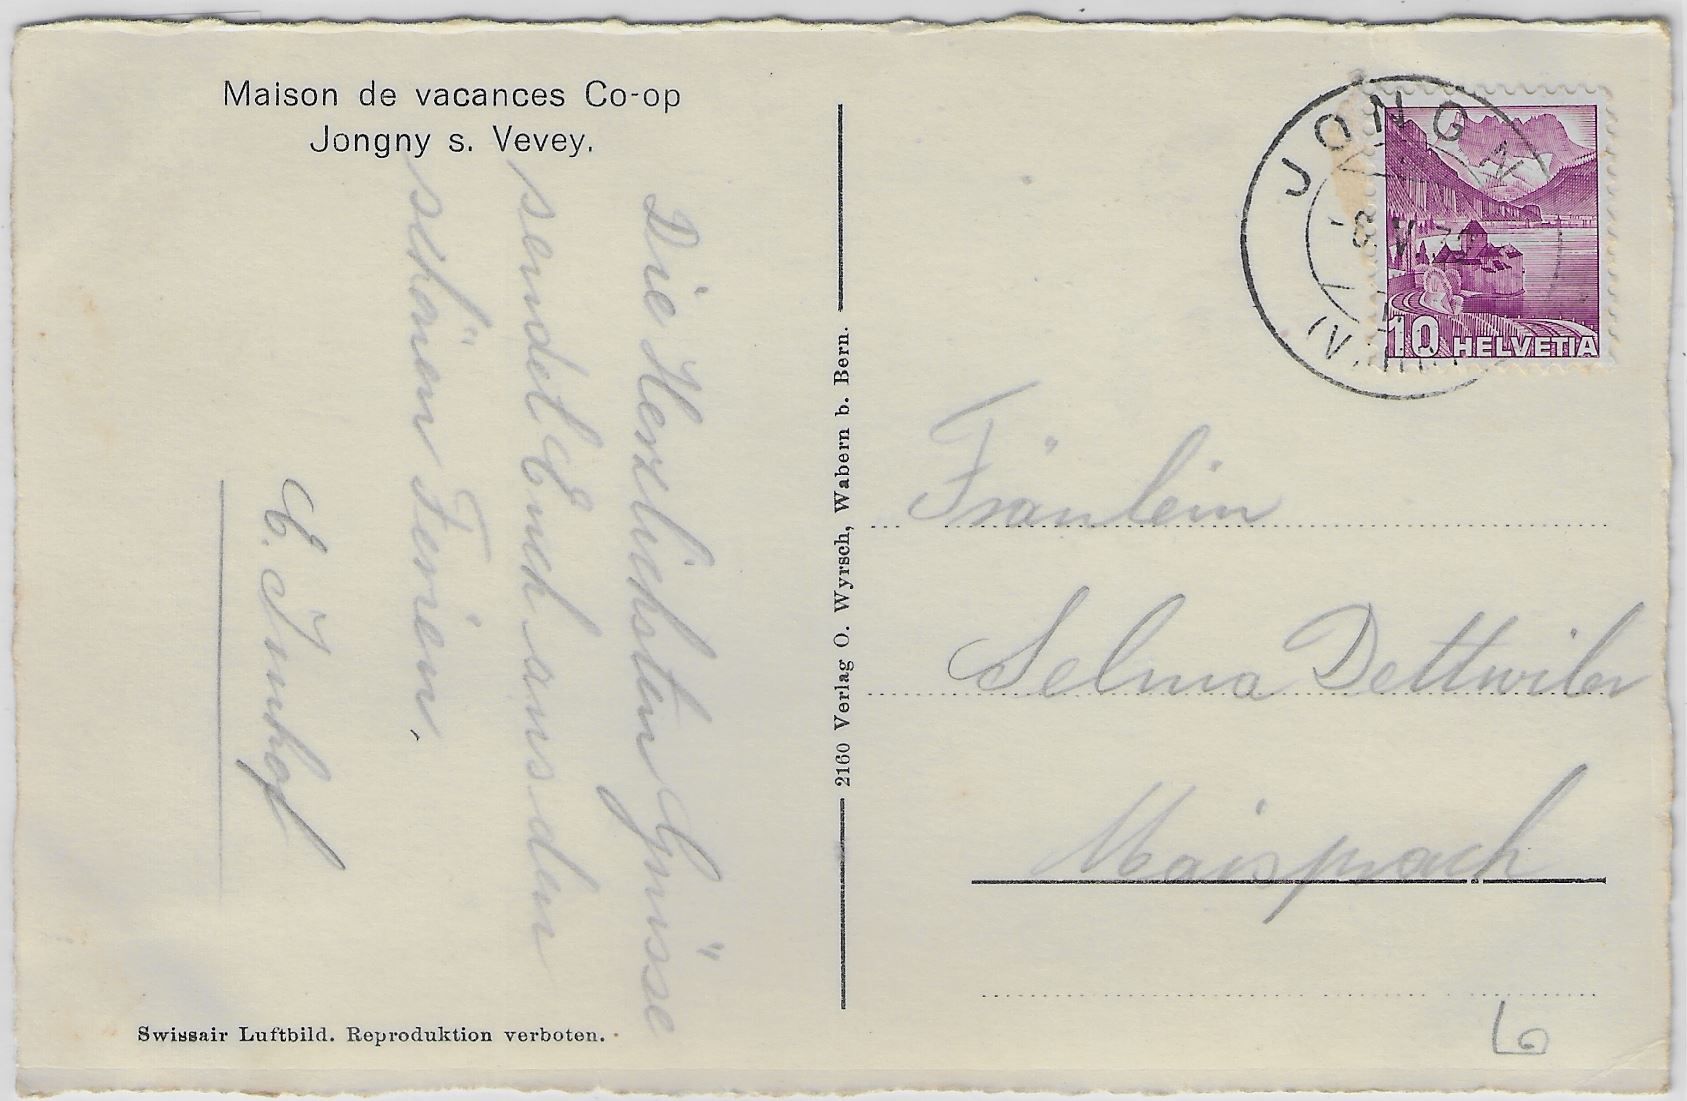 Maison de vacances Co-op
Jongny s. Vevey.
Die Herzlichsten Grüsse
sendet Euch aus den
schönen Ferien.
E. Imhof
Swissair Luftbild. Reproduktion verboten.
2160 Verlag O. Wyrsch, Wabern b. Bern.
JONGNY
10 HELVETIA
Fräulein
Selma Dettwiler
Maisprach